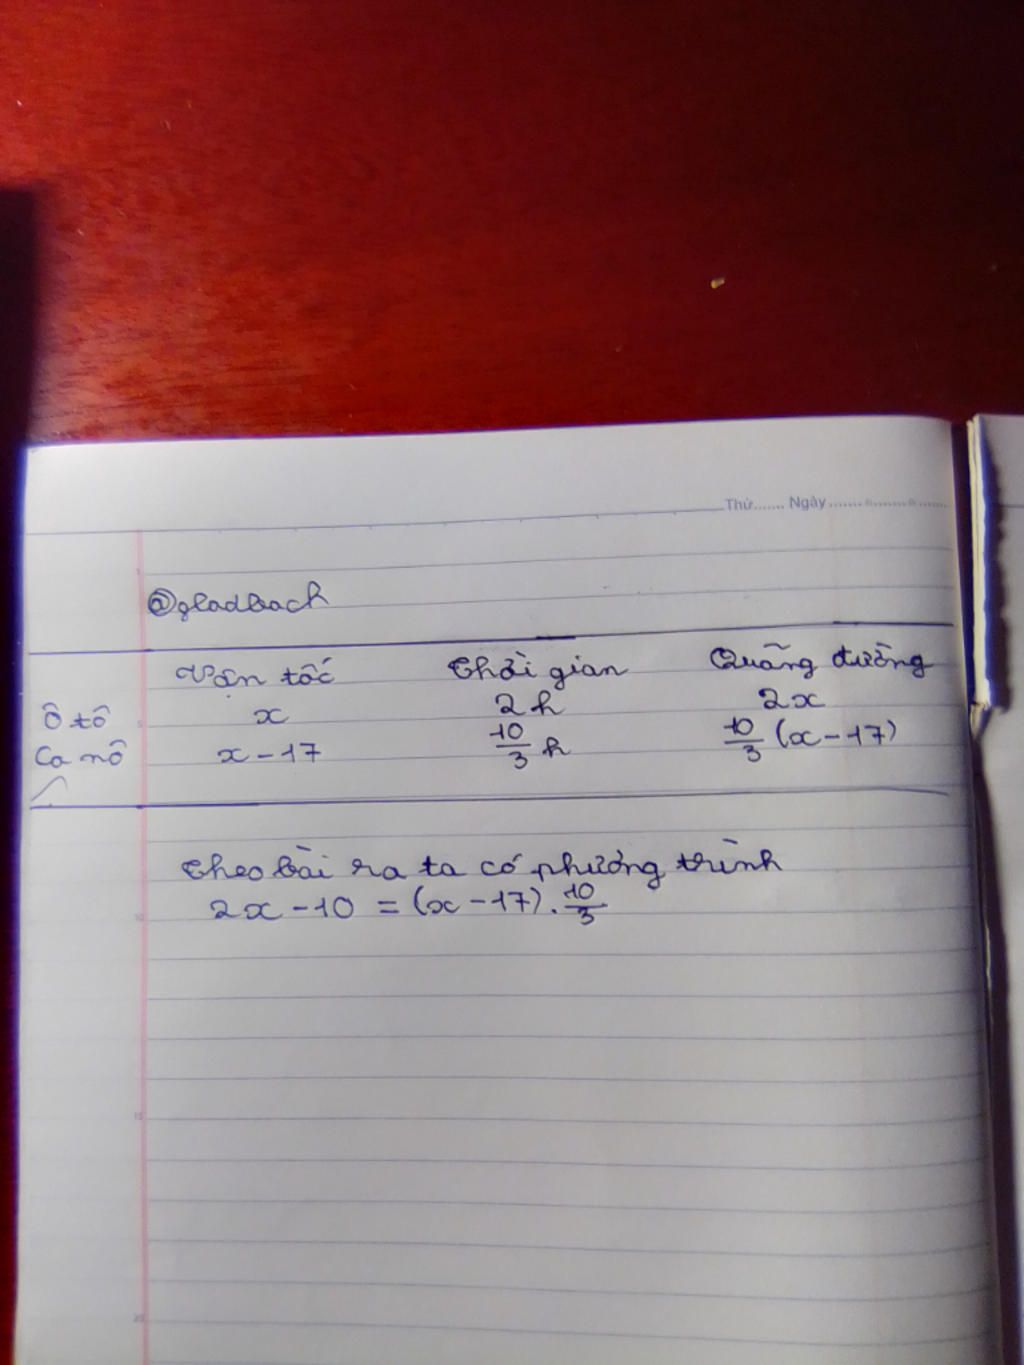 Thứ....... Ngày ....... ........ .......
@gladbach
Vận tốc Thời gian Quãng đường
Ô tô x 2h 2x
Ca nô x - 17 10/3 h 10/3 (x - 17)
Theo bài ra ta có phương trình
2x - 10 = (x - 17) . 10/3